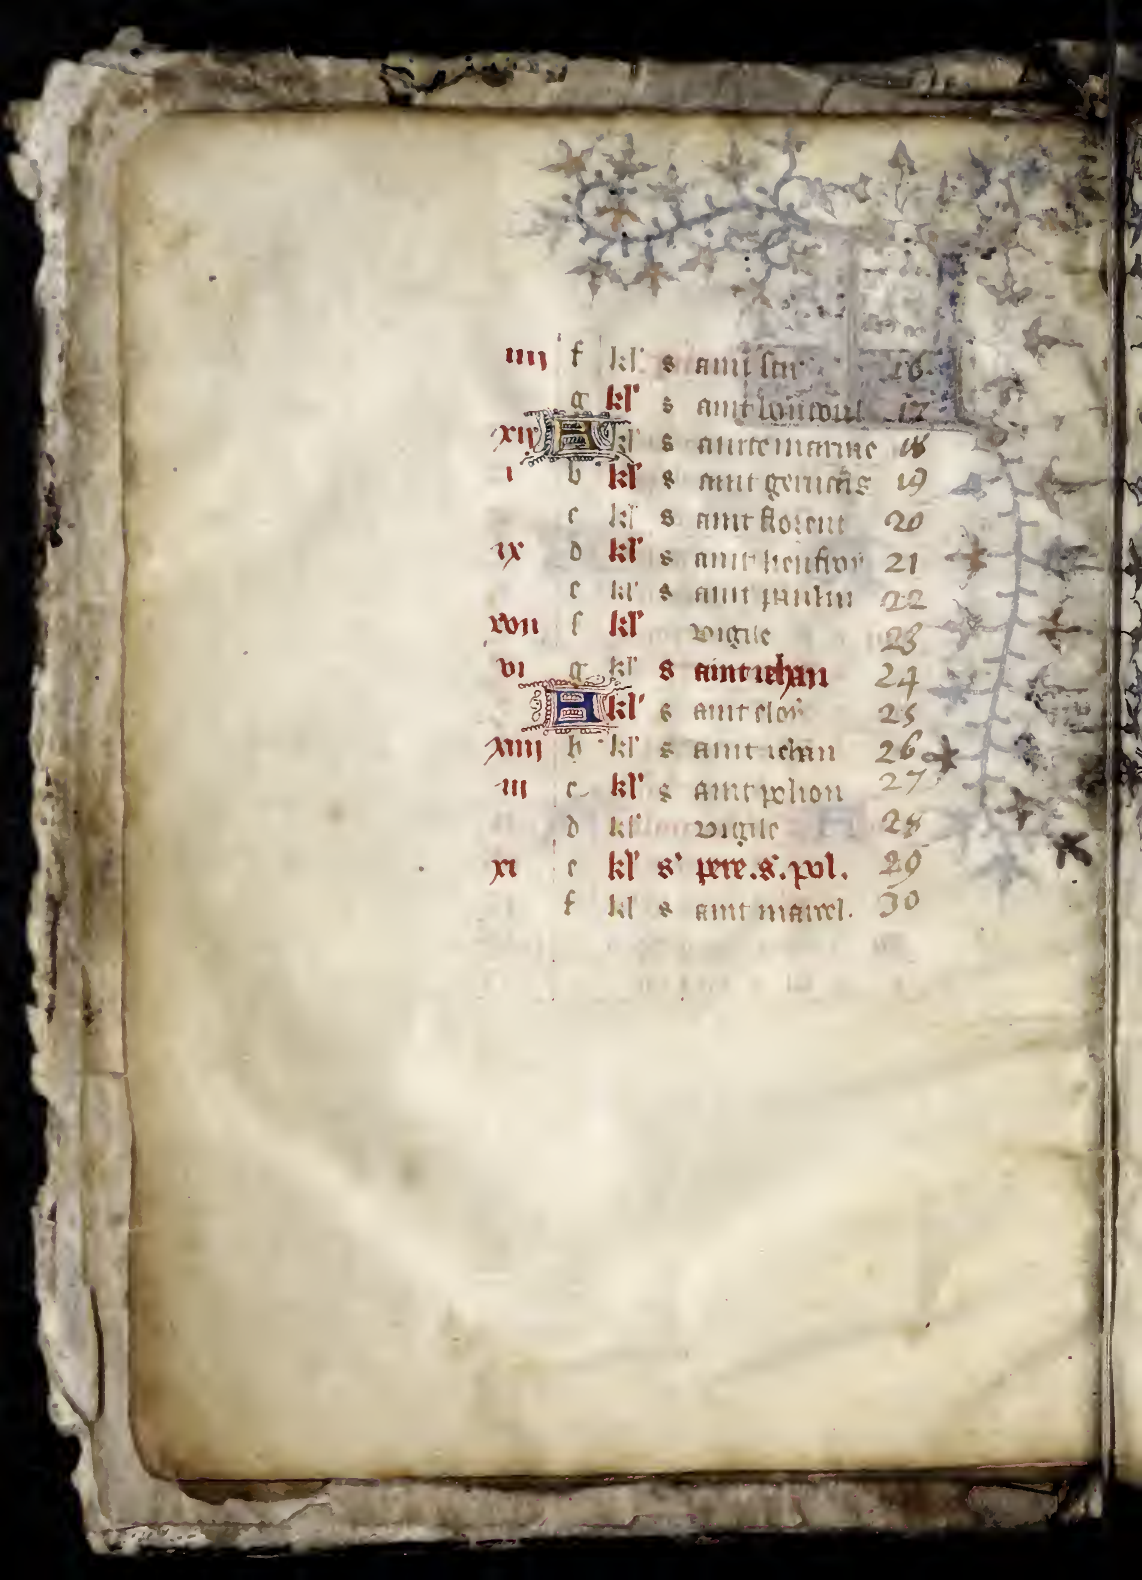 iiij f kl' s aint 16
g kl' s aint 17
xij A kl' s aincte marine 18
i b kl' s aint geruais 19
c kl' s aint florent 20
ix d kl' s aint 21
e kl' s aint paulin 22
xvii f kl' vigile 23
vi g kl' s aint iehan 24
A kl' s aint eloy 25
xiiij b kl' s aint iehan 26
iii c kl' s aint polion 27
d kl' vigile 28
xi e kl' s' pere .s'. pol. 29
f kl' s aint marcel. 30